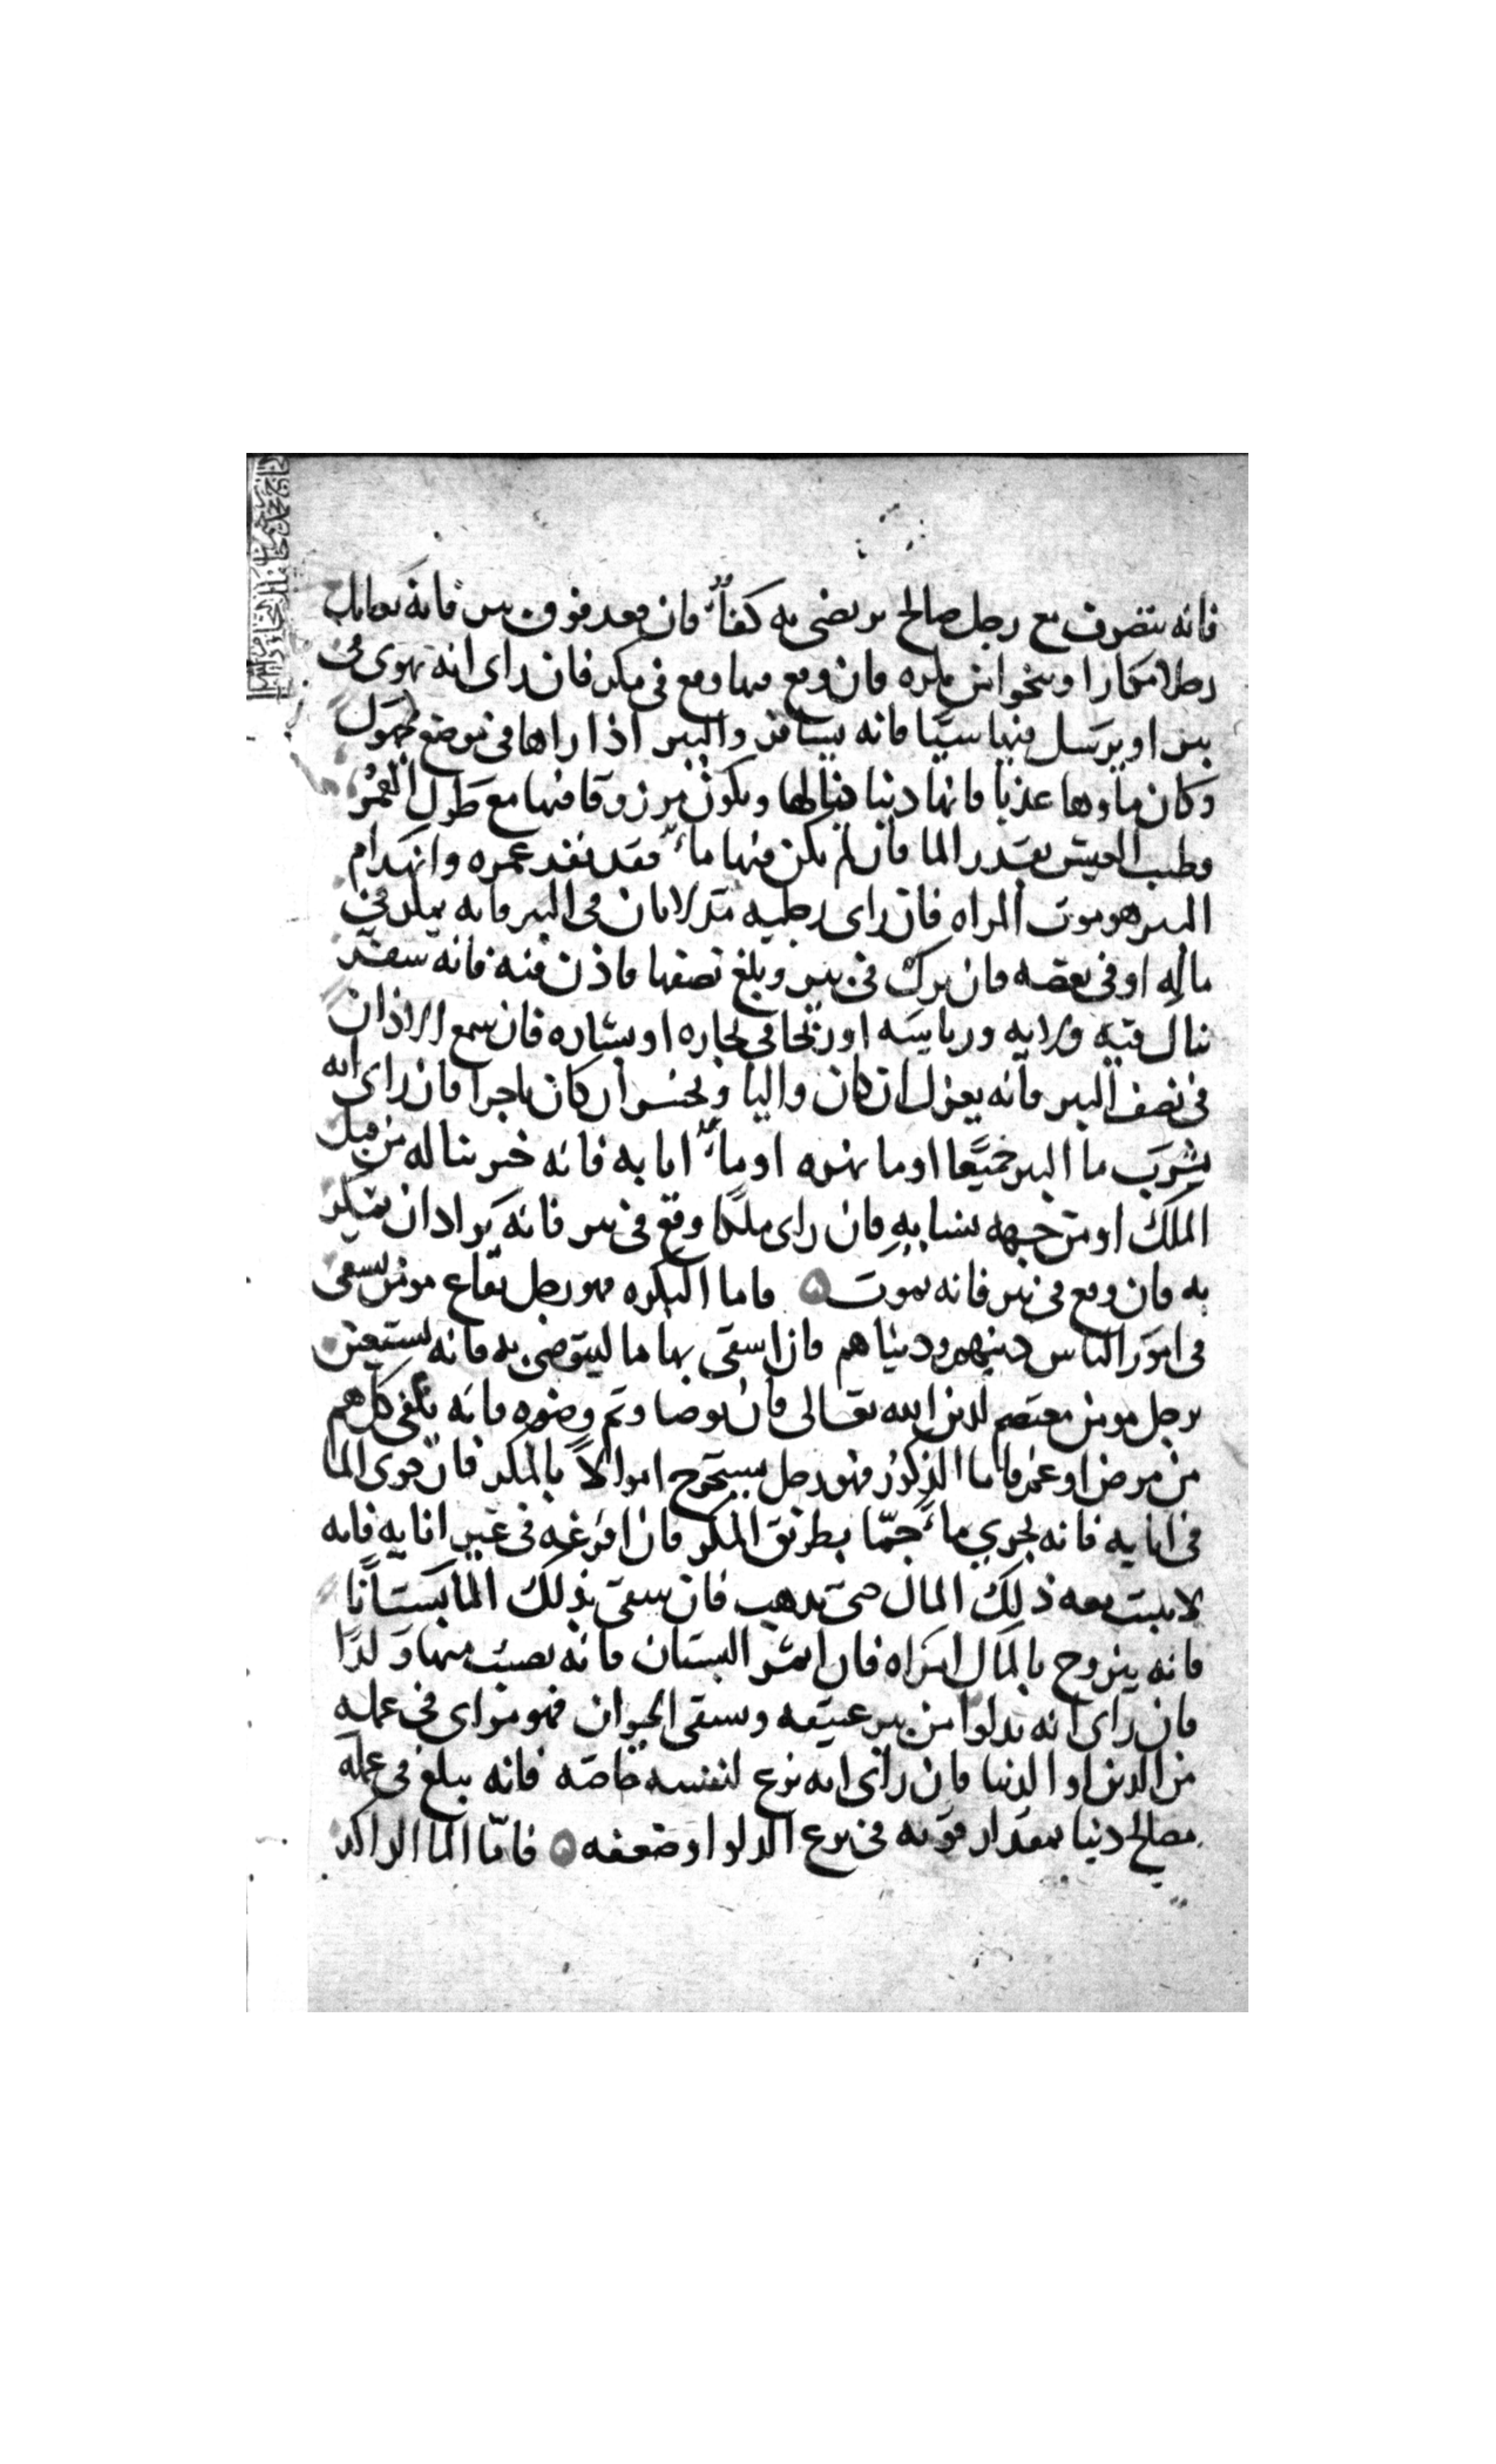 فانه يتصرف مع رجل صالح يرتضى به كفاءً فان قعد فوق بير فانه يعامل
رجلا مكارا وينجوا من مكره فان وقع فيها وقع في مكر فان راى انه يهوى في
بير او يرسل فيها شيا فانه يسافر والبير اذا راها في موضع مجهول
وكان ماوها عذبا فانها دنيا ينالها ويكون مرزوقا فيها مع طول العمر
وطيب العيش بقدر الما فان لم يكن فيها ماء فقد نفد عمره وانهدام
البير هو موت المراه فان راى رجليه تدلايان في البير فانه يمكر في
ماله او في بعضه فان برك في بير وبلغ نصفها فاذن فيه فانه سفر
ينال فيه ولايه ورياسه او ربحا في تجاره او بشاره فان سمع الاذان
في نصف البير فانه يعزل ان كان واليا ويخسر ان كان تاجرا فان راى انه
يشرب ما البير جميعا او ما نهره او ماء انا به فانه خير يناله من قبل
الملك او من جهه نسابه فان راى ملكا وقع في بير فانه يراد ان يمكر
به فان وقع في نير فانه يموت ۞ فاما البكره فهو رجل نفاع مومن يسعى
في امور الناس دينهم ودنياهم فان اسقى بها ما ليتوضى به فانه يستعين
برجل مومن معتصم لدين الله تعالى فان توضا وتم وضوه فانه يكفى كل هم
من مرض او غم فاما الذكور فهو رجل يستخرج اموالاً بالمكر فان حوى الما
في انايه فانه يجري ماءً جمّا بطريق المكر فان افرغه في غير انايه فانه
لا يثبت معه ذلك المال حتى يذهب فان سقى بذلك الما بستانًا
فانه يتزوج بالمال امراه فان اثمر البستان فانه يصيب منها ولدًا
فان راى انه يدلوا من بير عتيقه ويسقى الحيوان فهو مراى في عمله
من الدين او الدنيا فان راى انه نزع لنفسه خاصه فانه يبلغ في عمله
مصالح دنيا بمقدار قوته في نزع الدلو او ضعفه ۞ فامّا الما الراكد